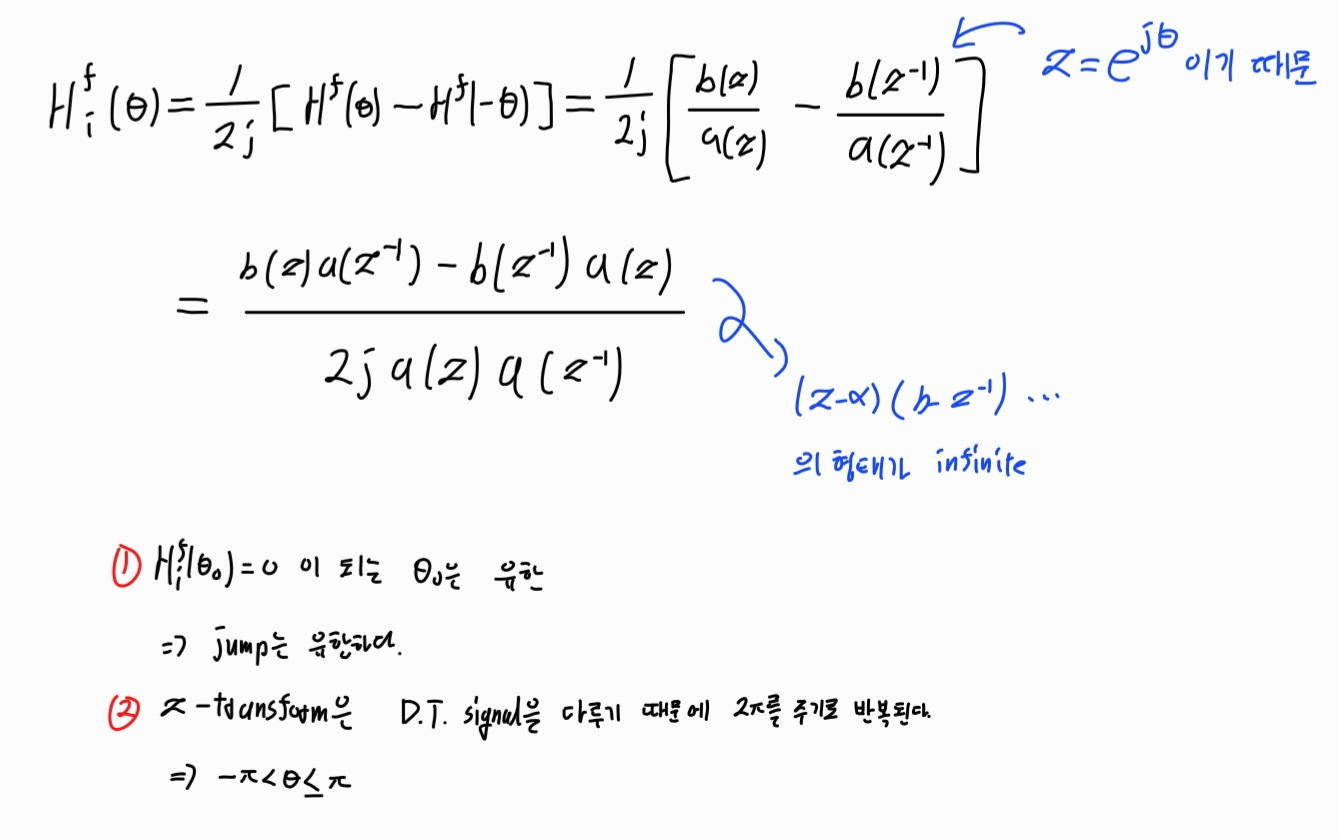 H_i^f(θ) = 1/2j [H^f(θ) - H^f(-θ)] = 1/2j [b(z)/a(z) - b(z⁻¹)/a(z⁻¹)] z = e^{jθ} 이기 때문
= (b(z)a(z⁻¹) - b(z⁻¹)a(z)) / (2j a(z) a(z⁻¹))
(z-α)(b-z⁻¹) ...
의 형태가 infinite
① H_i^f(θ₀) = 0 이 되는 θ₀은 유한
=> jump는 유한하다.
② z-transform은 D.T. signal을 다루기 때문에 2π를 주기로 반복된다.
=> -π < θ ≤ π